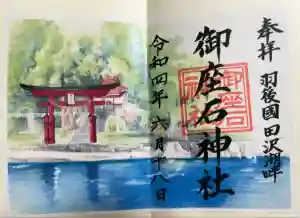 奉拝 羽後國田沢湖畔
御座石神社
令和四年六月十八日